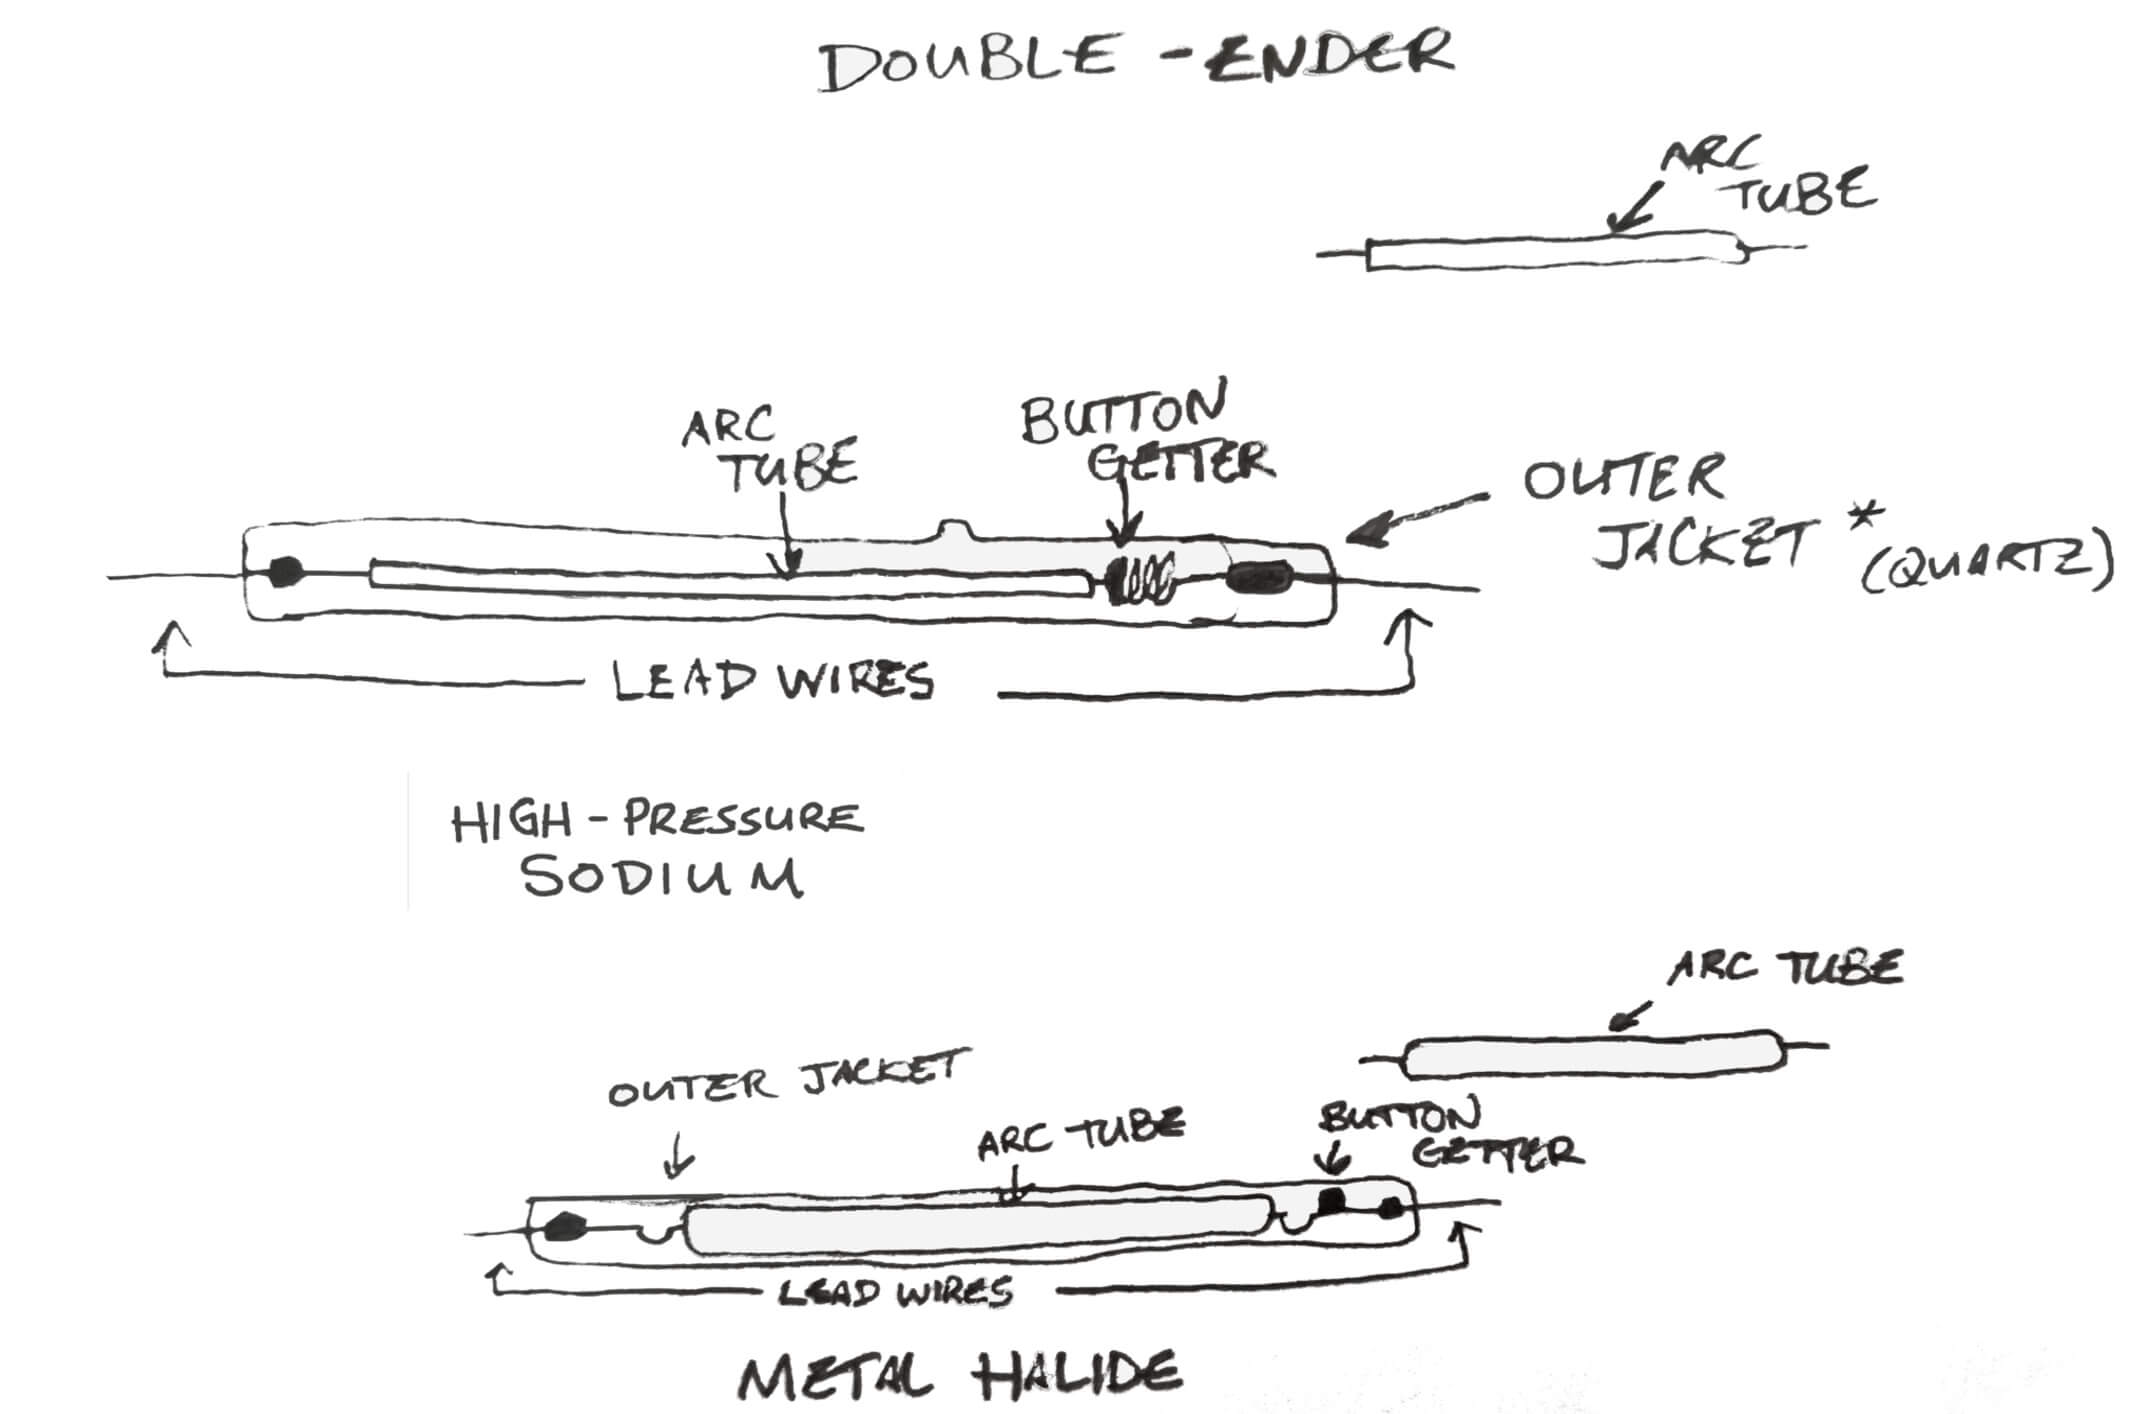 DOUBLE-ENDER
ARC
TUBE
ARC
TUBE
BUTTON
GETTER
OUTER
JACKET *
(QUARTZ)
LEAD WIRES
HIGH-PRESSURE
SODIUM
ARC TUBE
OUTER JACKET
ARC TUBE
BUTTON
GETTER
LEAD WIRES
METAL HALIDE